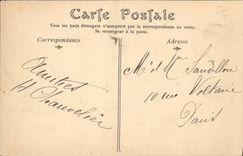 Carte Postale
Tous les pays étrangers n'acceptent pas la correspondance au recto.
Se renseigner à la poste.
Correspondance
Adresse
Amitiés
H Chauvelier
M et Mme
10 rue Voltaire
Paris